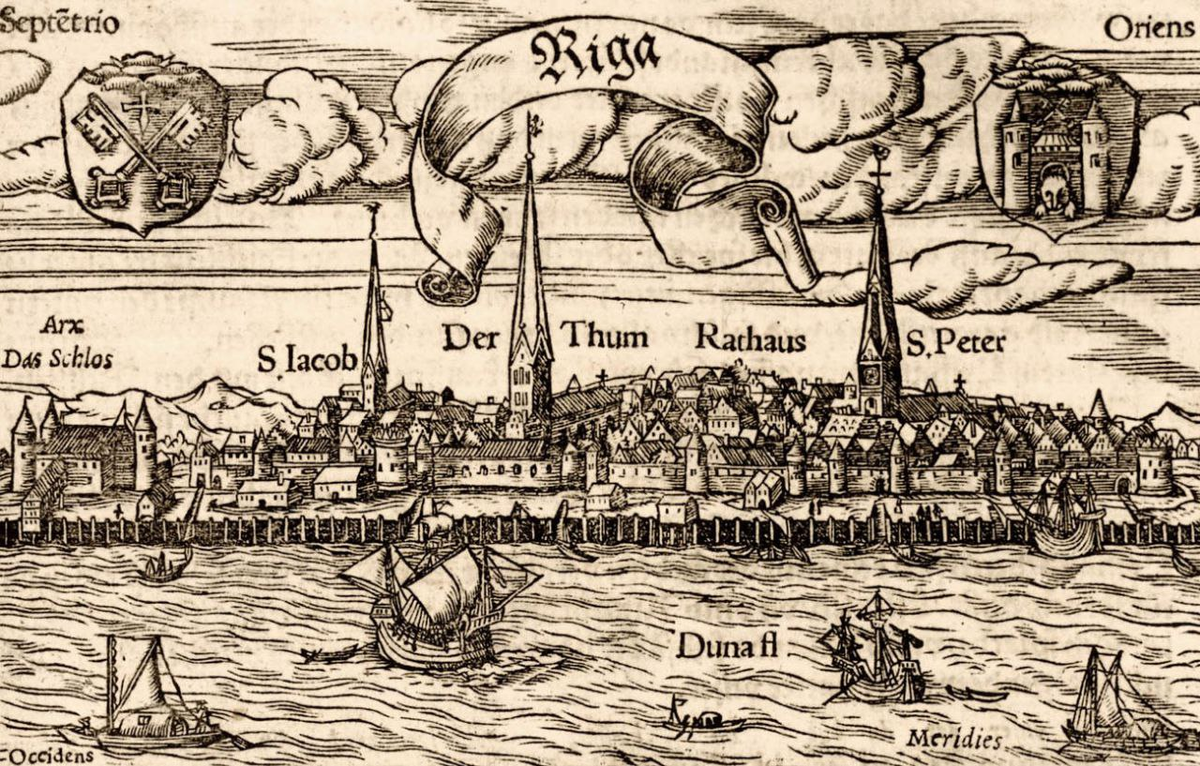 Septẽtrio
Oriens
Riga
Arx
Das Schlos
S. Iacob
Der Thum
Rathaus
S. Peter
Duna fl
Occidens
Meridies